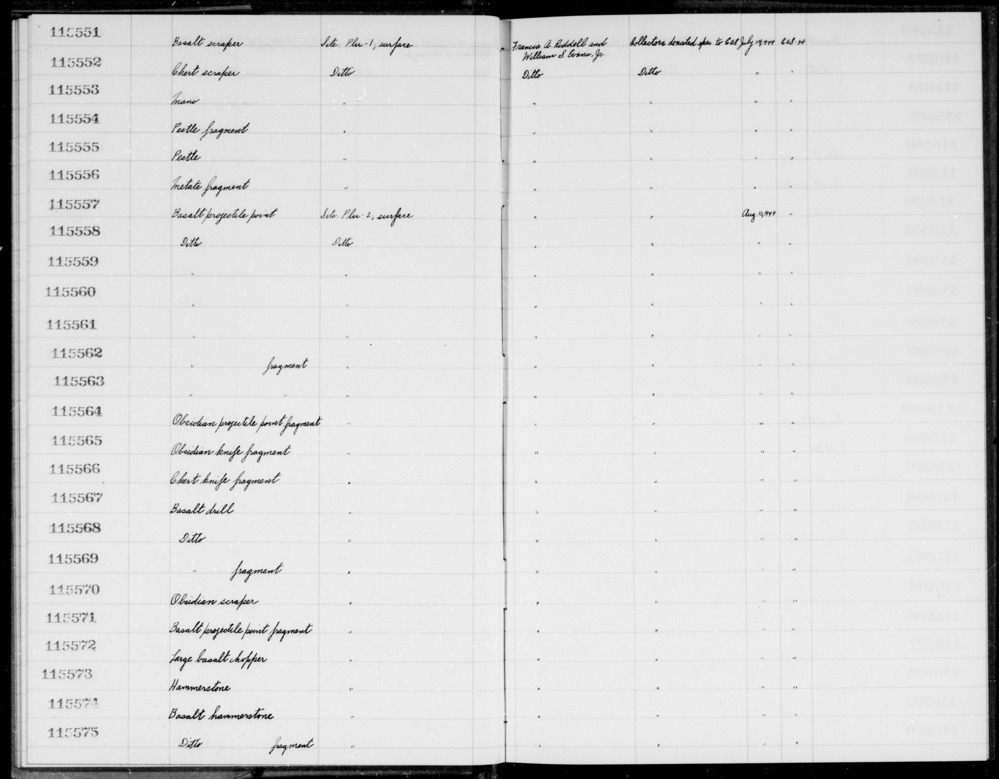 115551 Basalt scraper Site Plu-1, surface Francis A. Riddell and William S. Evans, Jr. Collectors donated spec to CAS July 19, 1949 CAS-24
115552 Chert scraper Ditto Ditto Ditto " "
115553 Mano " " " " "
115554 Pestle fragment " " " " "
115555 Pestle " " " " "
115556 Metate fragment " " " " "
115557 Basalt projectile point Site Plu-2, surface " " Aug. 1949 "
115558 Ditto Ditto " " " "
115559 " " " " " "
115560 " " " " " "
115561 " " " " " "
115562 " fragment " " " " "
115563 " " " " " " "
115564 Obsidian projectile point fragment " " " " "
115565 Obsidian knife fragment " " " " "
115566 Chert knife fragment " " " " "
115567 Basalt drill " " " " "
115568 Ditto " " " " "
115569 " fragment " " " " "
115570 Obsidian scraper " " " " "
115571 Basalt projectile point fragment " " " " "
115572 Large basalt chopper " " " " "
115573 Hammerstone " " " " "
115574 Basalt hammerstone " " " " "
115575 Ditto fragment " " " " "